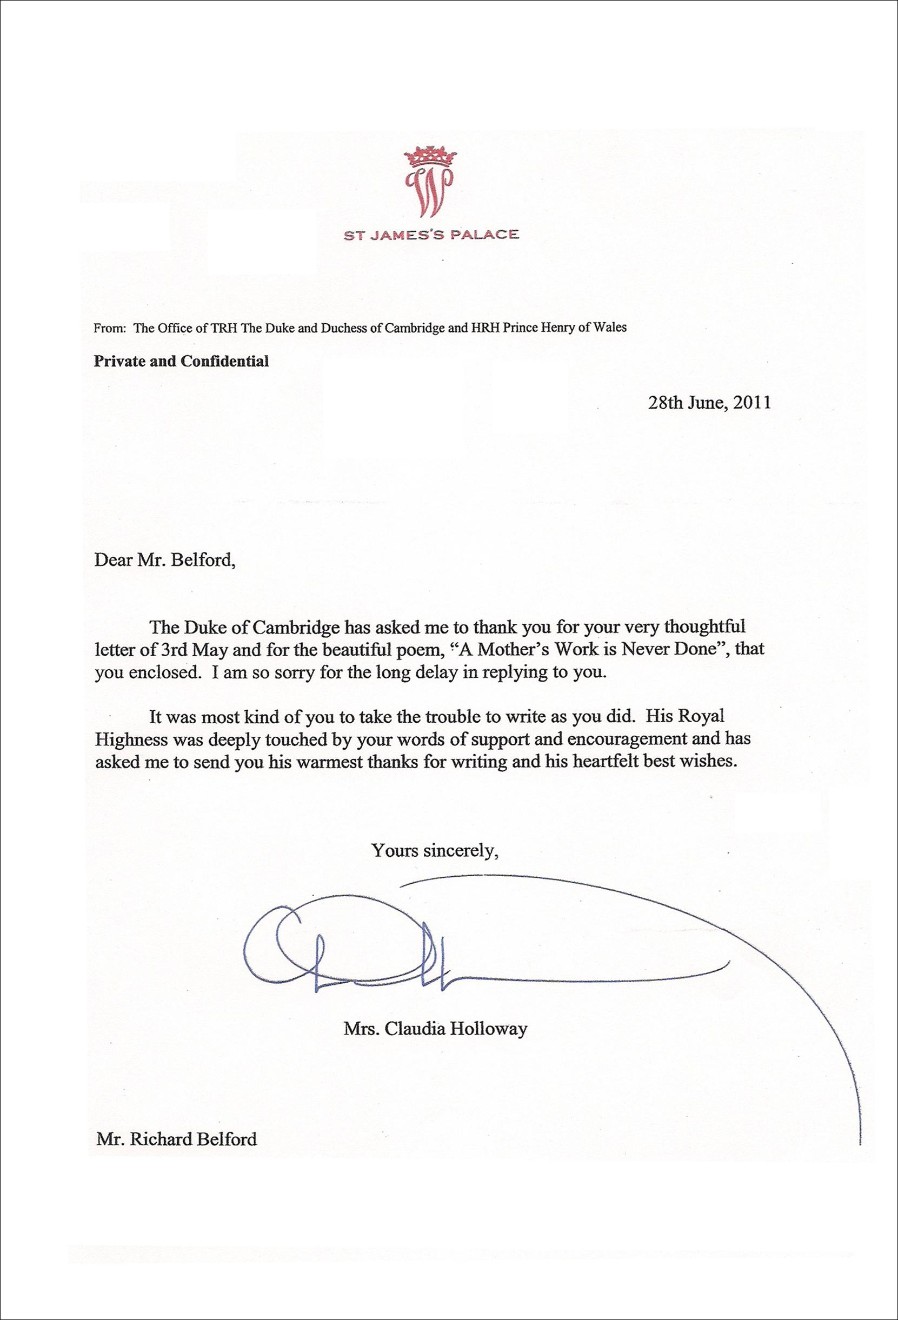 ST JAMES'S PALACE
From: The Office of TRH The Duke and Duchess of Cambridge and HRH Prince Henry of Wales
Private and Confidential
28th June, 2011
Dear Mr. Belford,
The Duke of Cambridge has asked me to thank you for your very thoughtful
letter of 3rd May and for the beautiful poem, “A Mother’s Work is Never Done”, that
you enclosed. I am so sorry for the long delay in replying to you.
It was most kind of you to take the trouble to write as you did. His Royal
Highness was deeply touched by your words of support and encouragement and has
asked me to send you his warmest thanks for writing and his heartfelt best wishes.
Yours sincerely,
Mrs. Claudia Holloway
Mr. Richard Belford